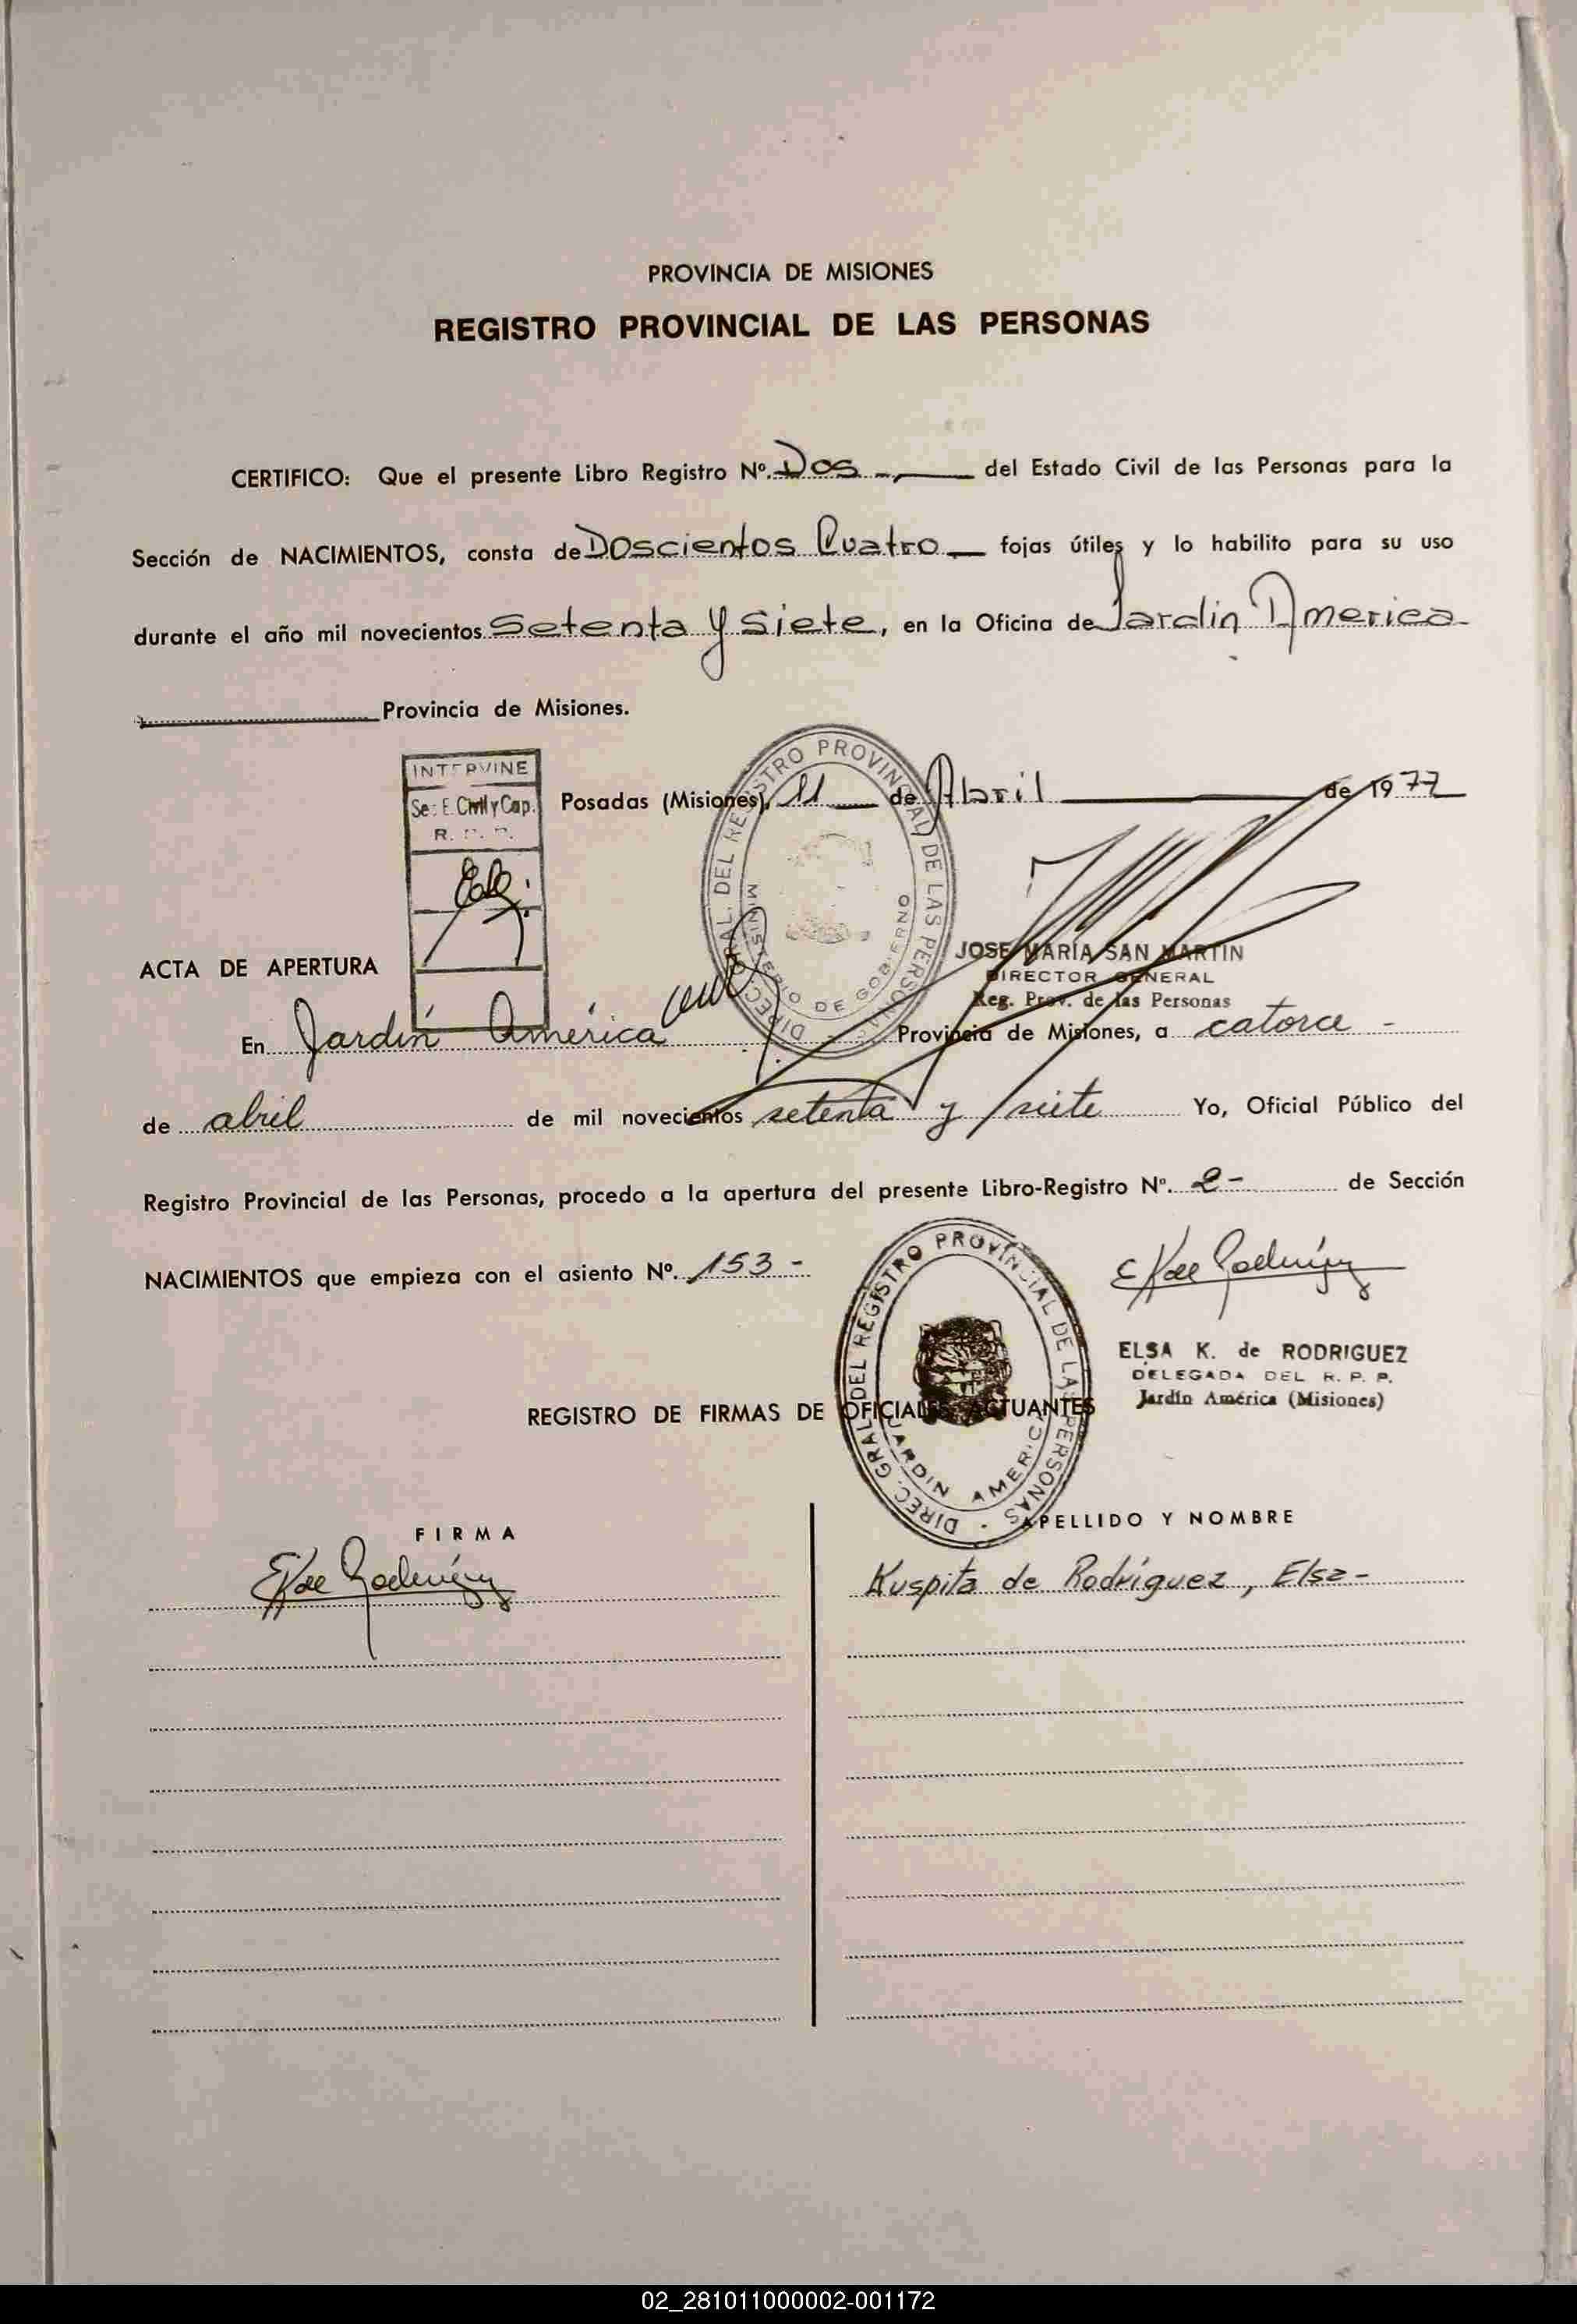 PROVINCIA DE MISIONES
REGISTRO PROVINCIAL DE LAS PERSONAS
CERTIFICO: Que el presente Libro Registro Nº. Dos del Estado Civil de las Personas para la
Sección de NACIMIENTOS, consta de Doscientos Cuatro fojas útiles y lo habilito para su uso
durante el año mil novecientos Setenta y siete, en la Oficina de Jardin America
Provincia de Misiones.
INTERVINE
Sec. E. Civil y Cap.
R. P. P.
Posadas (Misiones), 11 de Abril de 1977
DIREC. GRAL. DEL REGISTRO PROVINCIAL DE LAS PERSONAS
MINISTERIO DE GOBIERNO
JOSE MARIA SAN MARTIN
DIRECTOR GENERAL
Reg. Prov. de las Personas
ACTA DE APERTURA
En Jardín América Provincia de Misiones, a catorce -
de abril de mil novecientos setenta y siete Yo, Oficial Público del
Registro Provincial de las Personas, procedo a la apertura del presente Libro-Registro Nº. 2- de Sección
NACIMIENTOS que empieza con el asiento Nº. 153 -
E K de Rodríguez
ELSA K. de RODRIGUEZ
DELEGADA DEL R. P. P.
Jardín América (Misiones)
DIREC. GRAL DEL REGISTRO PROVINCIAL DE LAS PERSONAS -
JARDIN AMERICA
REGISTRO DE FIRMAS DE OFICIALES ACTUANTES
FIRMA
APELLIDO Y NOMBRE
E K de Rodríguez
Kuspita de Rodríguez, Elsa-
02_281011000002-001172